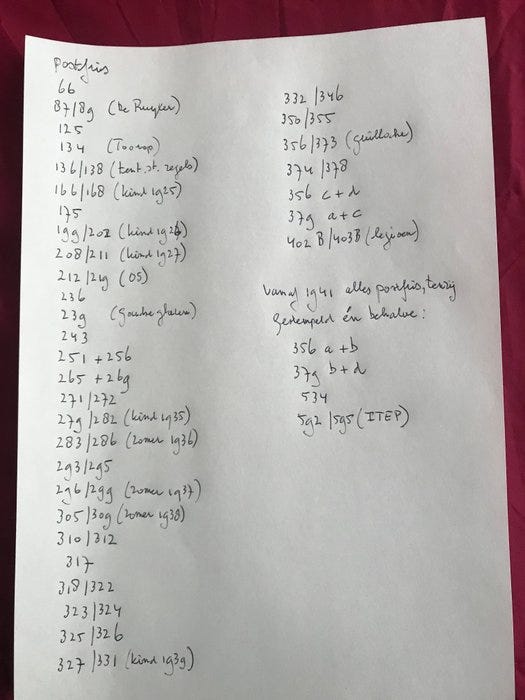 Postfris
66
87/89 (De Ruyter)
125
134 (Toorop)
136/138 (tent. st. zegels)
166/168 (kind 1925)
175
199/202 (kind 1926)
208/211 (kind 1927)
212/219 (OS)
236
239 (Goudse glazen)
243
251 + 256
265 + 269
271/272
279/282 (kind 1935)
283/286 (zomer 1936)
293/295
296/299 (zomer 1937)
305/309 (zomer 1938)
310/312
317
318/322
323/324
325/326
327/331 (kind 1939)
332/346
350/355
356/373 (guilloche)
374/378
356 c+d
379 a+c
402B/403B (legioen)
vanaf 1941 alles postfris, tenzij
gestempeld én behalve:
356 a+b
379 b+d
534
592/595 (ITEP)